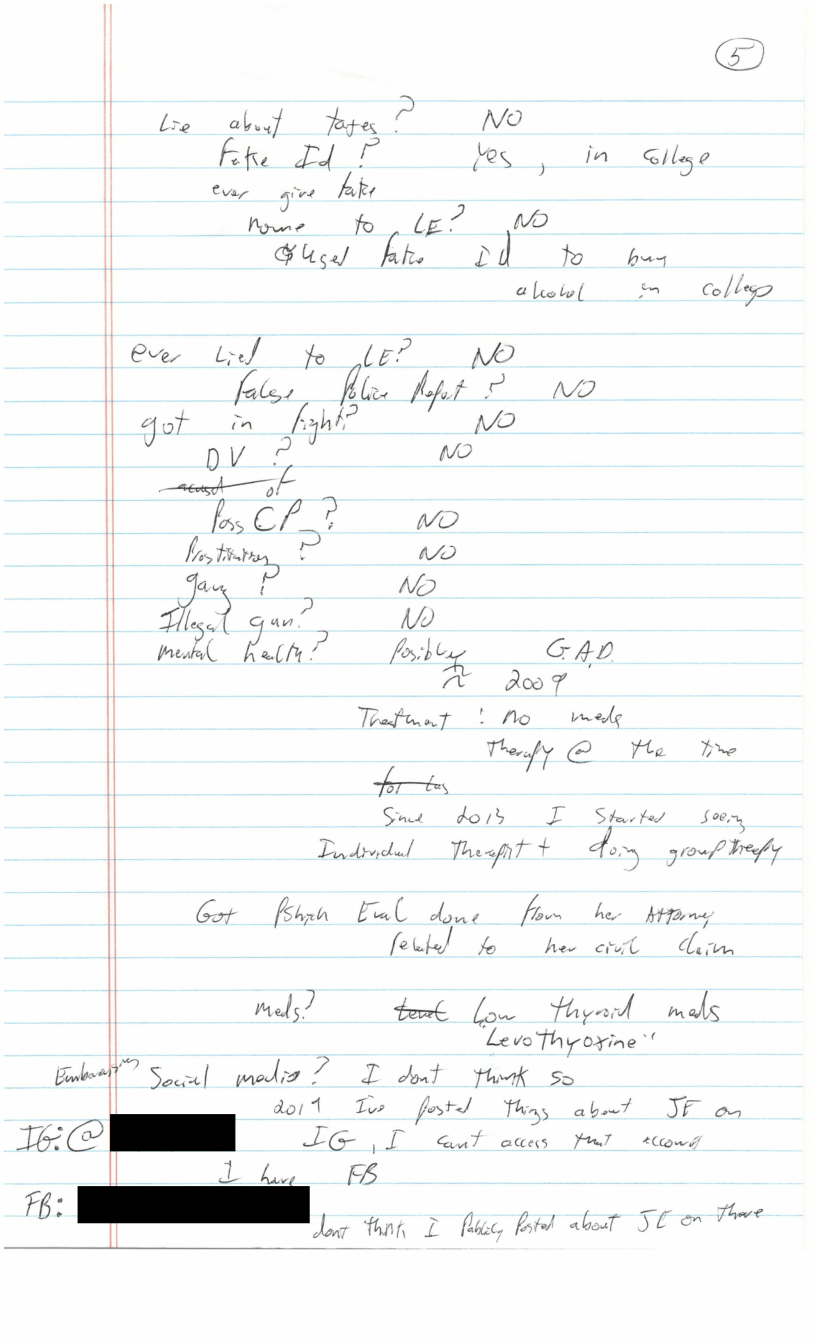 5
Lie about taxes? NO
Fake Id? yes, in college
ever give fake
name to LE? NO
Used fake Id to buy
alcohol in college
ever Lied to LE? NO
False Police Report? NO
got in fight? NO
DV? NO
of
Poss CP? NO
Prostitution? NO
gang? NO
Illegal gun? NO
mental health? Posibly G.A.D.
2009
Treatment: no meds
therapy @ the time
for
Since 2013 I started seeing
Individual therapist + doing group therapy
Got Eval done from her Attorney
related to her civil claim
meds? Low thyroid meds
"Levothyoxine"
Embarassing Social media? I dont think so
2019 Ive posted things about JE on
IG:@ IG, I cant access that account
I have FB
FB:
dont think I Publicly Posted about JE on there